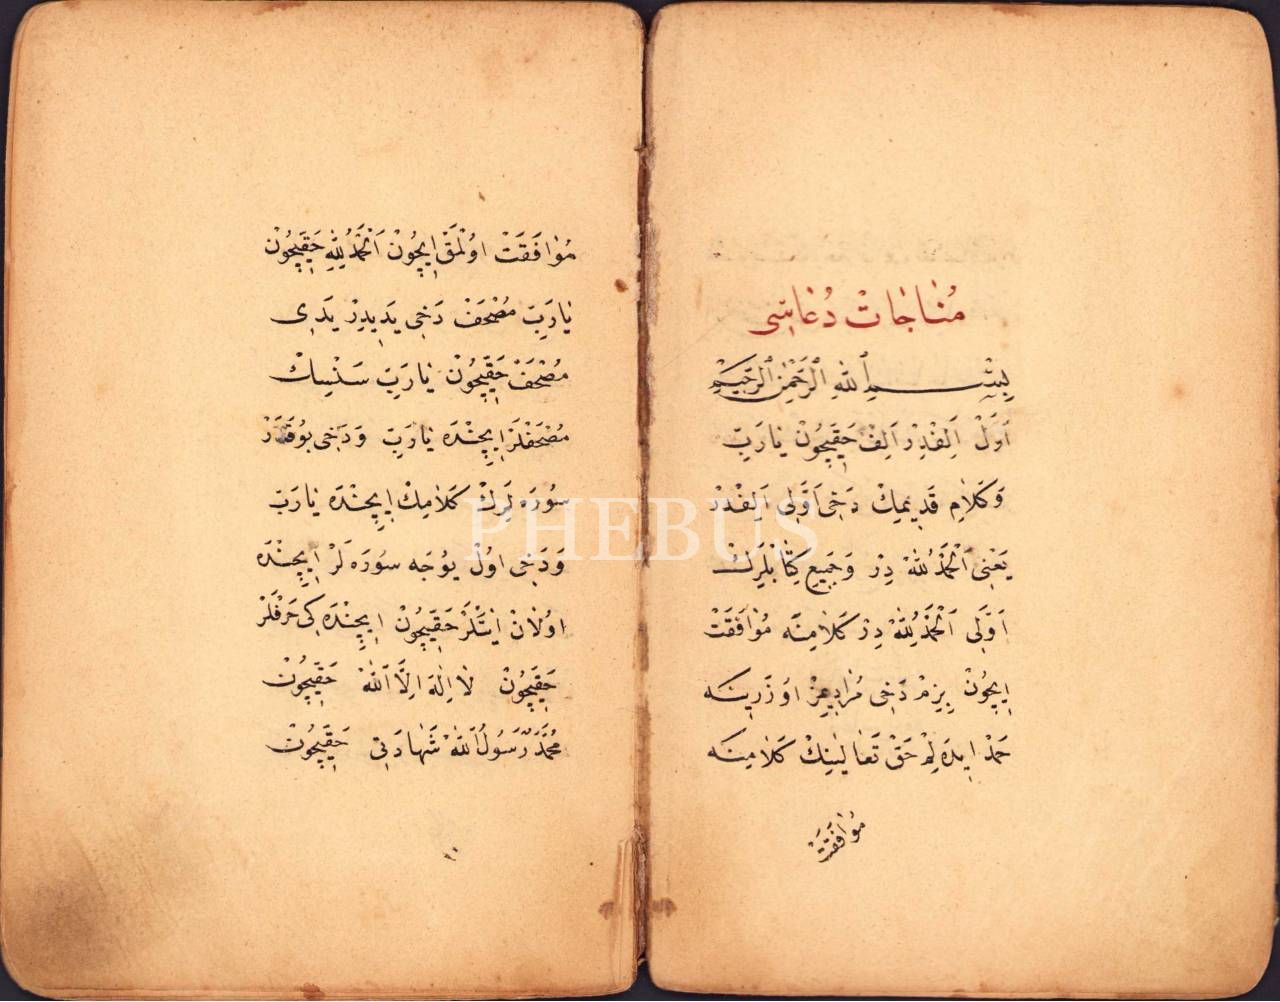 مُنَاجَاتْ دُعَاسِی
بِسْمِ ٱللّٰهِ ٱلرَّحْمٰنِ ٱلرَّحِيمِ
اَوَّلْ اَلِفْدِرْ اَلِفْ حَقِّیچُونْ یَارَبِّ
وَ كَلَامِ قَدِیمِكْ دَخِی اَوَّلِی اَلِفْدِرْ
یَعْنِی اَلْحَمْدُ لِلّٰهْ دِرْ وَ جَمِیعِ كِتَابْلَرِكْ
اَوَّلِی اَلْحَمْدُ لِلّٰهْ دِرْ كَلَامِنَه مُوَافَقَتْ
اِیچُونْ بِزِمْ دَخِی مُرَادِیمِزْ اوُزَرِینَه
حَمْدْ اِیدَه لِمْ حَقْ تَعَالَینِكْ كَلَامِنَه
مُوَافَقَتْ
مُوَافَقَتْ اوُلْمَقْ اِیچُونْ اَلْحَمْدُ لِلّٰهِ حَقِّیچُونْ
یَارَبِّ مُصْحَفْ دَخِی یَدِیدِرْ یَدِی
مُصْحَفْ حَقِّیچُونْ یَارَبِّ سَنْسِكْ
مُصْحَفْلَرْ اِیچِنْدَه یَارَبِّ وَدَخِی بُوقَدَرْ
سُورَه لَرِكْ كَلَامِكْ اِیچِنْدَه یَارَبِّ
وَدَخِی اوُلْ یُوجَه سُورَه لَرْ اِیچِنْدَه
اوُلَانْ اٰیَتْلَرْ حَقِّیچُونْ اِیچِنْدَه كِی حَرْفْلَرْ
حَقِّیچُونْ لَا اِلٰهَ اِلَّا اللّٰهْ حَقِّیچُونْ
مُحَمَّدٌ رَسُولُ اللّٰهْ شَهَادَتِی حَقِّیچُونْ
PHEBUS